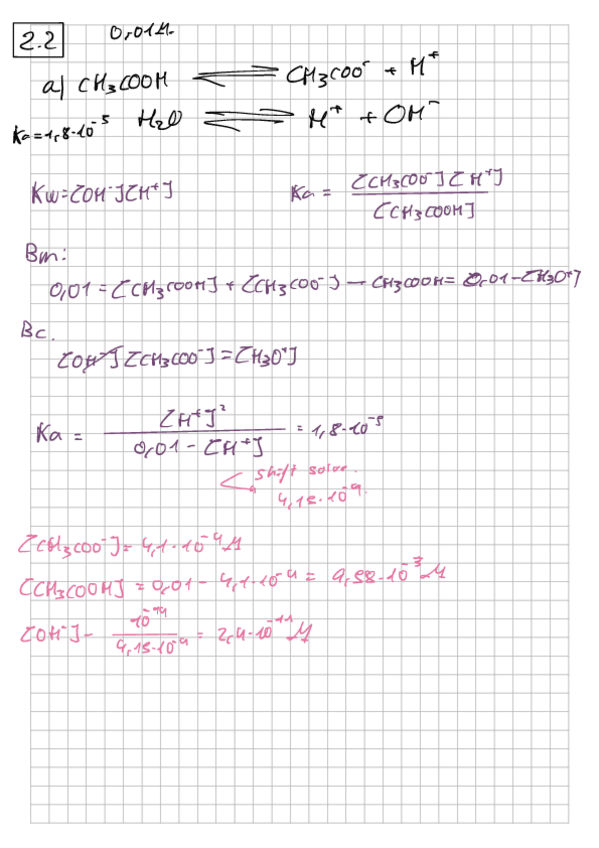 2.2 0,01M.
a) CH3COOH ⇌ CH3COO⁻ + H⁺
Ka=1,8·10⁻⁵ H2O ⇌ H⁺ + OH⁻
Kw=[OH⁻][H⁺] Ka = [CH3COO⁻][H⁺] / [CH3COOH]
Bm:
0,01 = [CH3COOH] + [CH3COO⁻] — CH3COOH = 0,01-[H3O⁺]
Bc.
[OH⁻][CH3COO⁻] = [H3O⁺]
Ka = [H⁺]² / 0,01 - [H⁺] = 1,8·10⁻⁵
shift solve.
4,15·10⁻⁴.
[CH3COO⁻] = 4,1·10⁻⁴M
[CH3COOH] = 0,01 - 4,1·10⁻⁴ = 9,58·10⁻³M
[OH⁻]- 10⁻¹⁴ / 4,15·10⁻⁴ = 2,4·10⁻¹¹ M